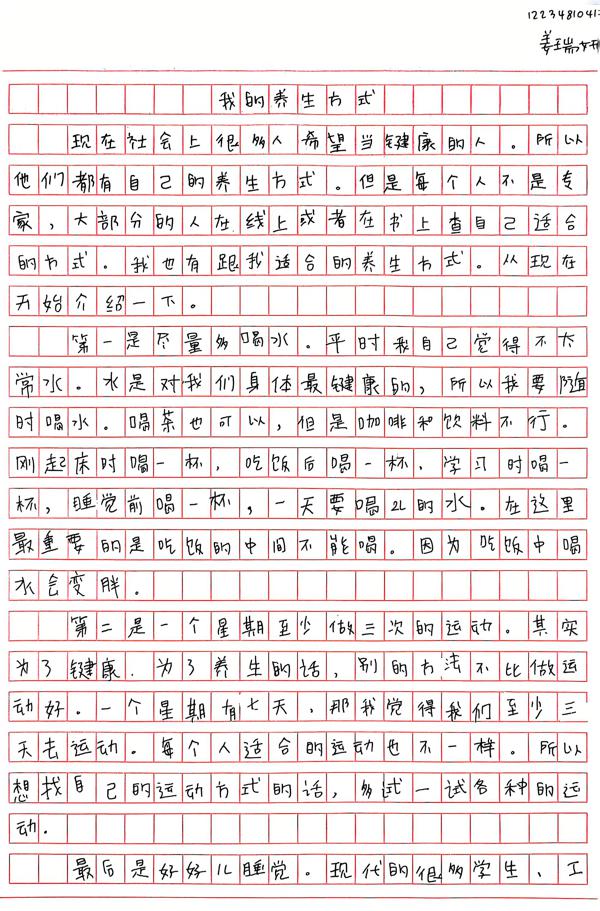 1223481041
姜瑞妍
我的养生方式
现在社会上很多人希望当键康的人。所以
他们都有自己的养生方式。但是每个人不是专
家，大部分的人在线上或者在书上查自己适合
的方式。我也有跟我适合的养生方式。从现在
开始介绍一下。
第一是尽量多喝水。平时我自己觉得不太
常水。水是对我们身体最键康的，所以我要随
时喝水。喝茶也可以，但是咖啡和饮料不行。
刚起床时喝一杯，吃饭后喝一杯，学习时喝一
杯，睡觉前喝一杯，一天要喝2L的水。在这里
最重要的是吃饭的中间不能喝。因为吃饭中喝
水会变胖。
第二是一个星期至少做三次的运动。其实
为了键康，为了养生的话，别的方法不比做运
动好。一个星期有七天，那我觉得我们至少三
天去运动。每个人适合的运动也不一样。所以
想找自己的运动方式的话，多试一试各种的运
动．
最后是好好儿睡觉。现代的很多学生、工